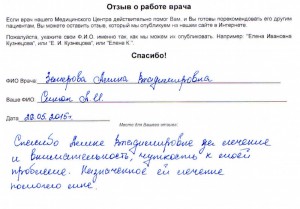 Отзыв о работе врача
Если врач нашего Медицинского Центра действительно помог Вам, и Вы готовы порекомендовать его другим
пациентам, Вы можете оставить отзыв, который мы опубликуем на нашем сайте в Интернете.
Пожалуйста, укажите свои Ф.И.О. именно так, как мы можем их опубликовать. Например: "Елена Ивановна
Кузнецова", или "Е. И. Кузнецова", или "Елена К.".
Спасибо!
ФИО Врача Владимировна
Ваше ФИО
Дата 20.05.2015г.
Место для Вашего отзыва:
Спасибо Владимировне за лечение
и внимательность, чуткость к моей
проблеме. Назначенное ей лечение
помогло мне.